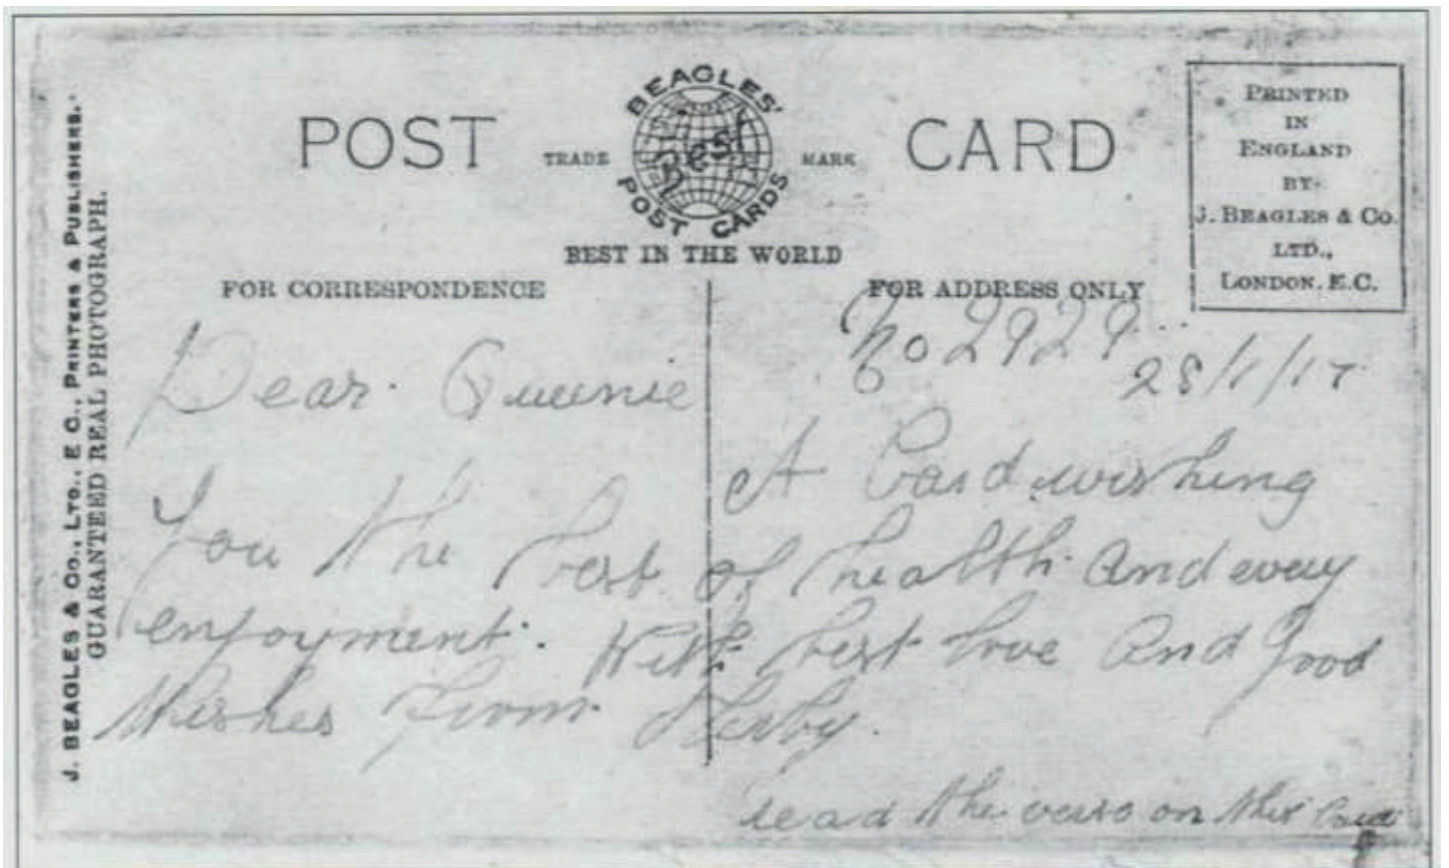 J. BEAGLES & Co., LTD., E C., PRINTERS & PUBLISHERS.
GUARANTEED REAL PHOTOGRAPH.
POST CARD
TRADE MARK
BEAGLES'
BEST
POST CARDS
BEST IN THE WORLD
PRINTED
IN
ENGLAND
BY
J. BEAGLES & Co.
LTD.,
LONDON. E.C.
FOR CORRESPONDENCE
FOR ADDRESS ONLY
No 2929
28/1/17
Dear Queenie
A Card wishing
You the best of health and every
enjoyment. With best love And Good
Wishes From Herby.
read the verse on this Card